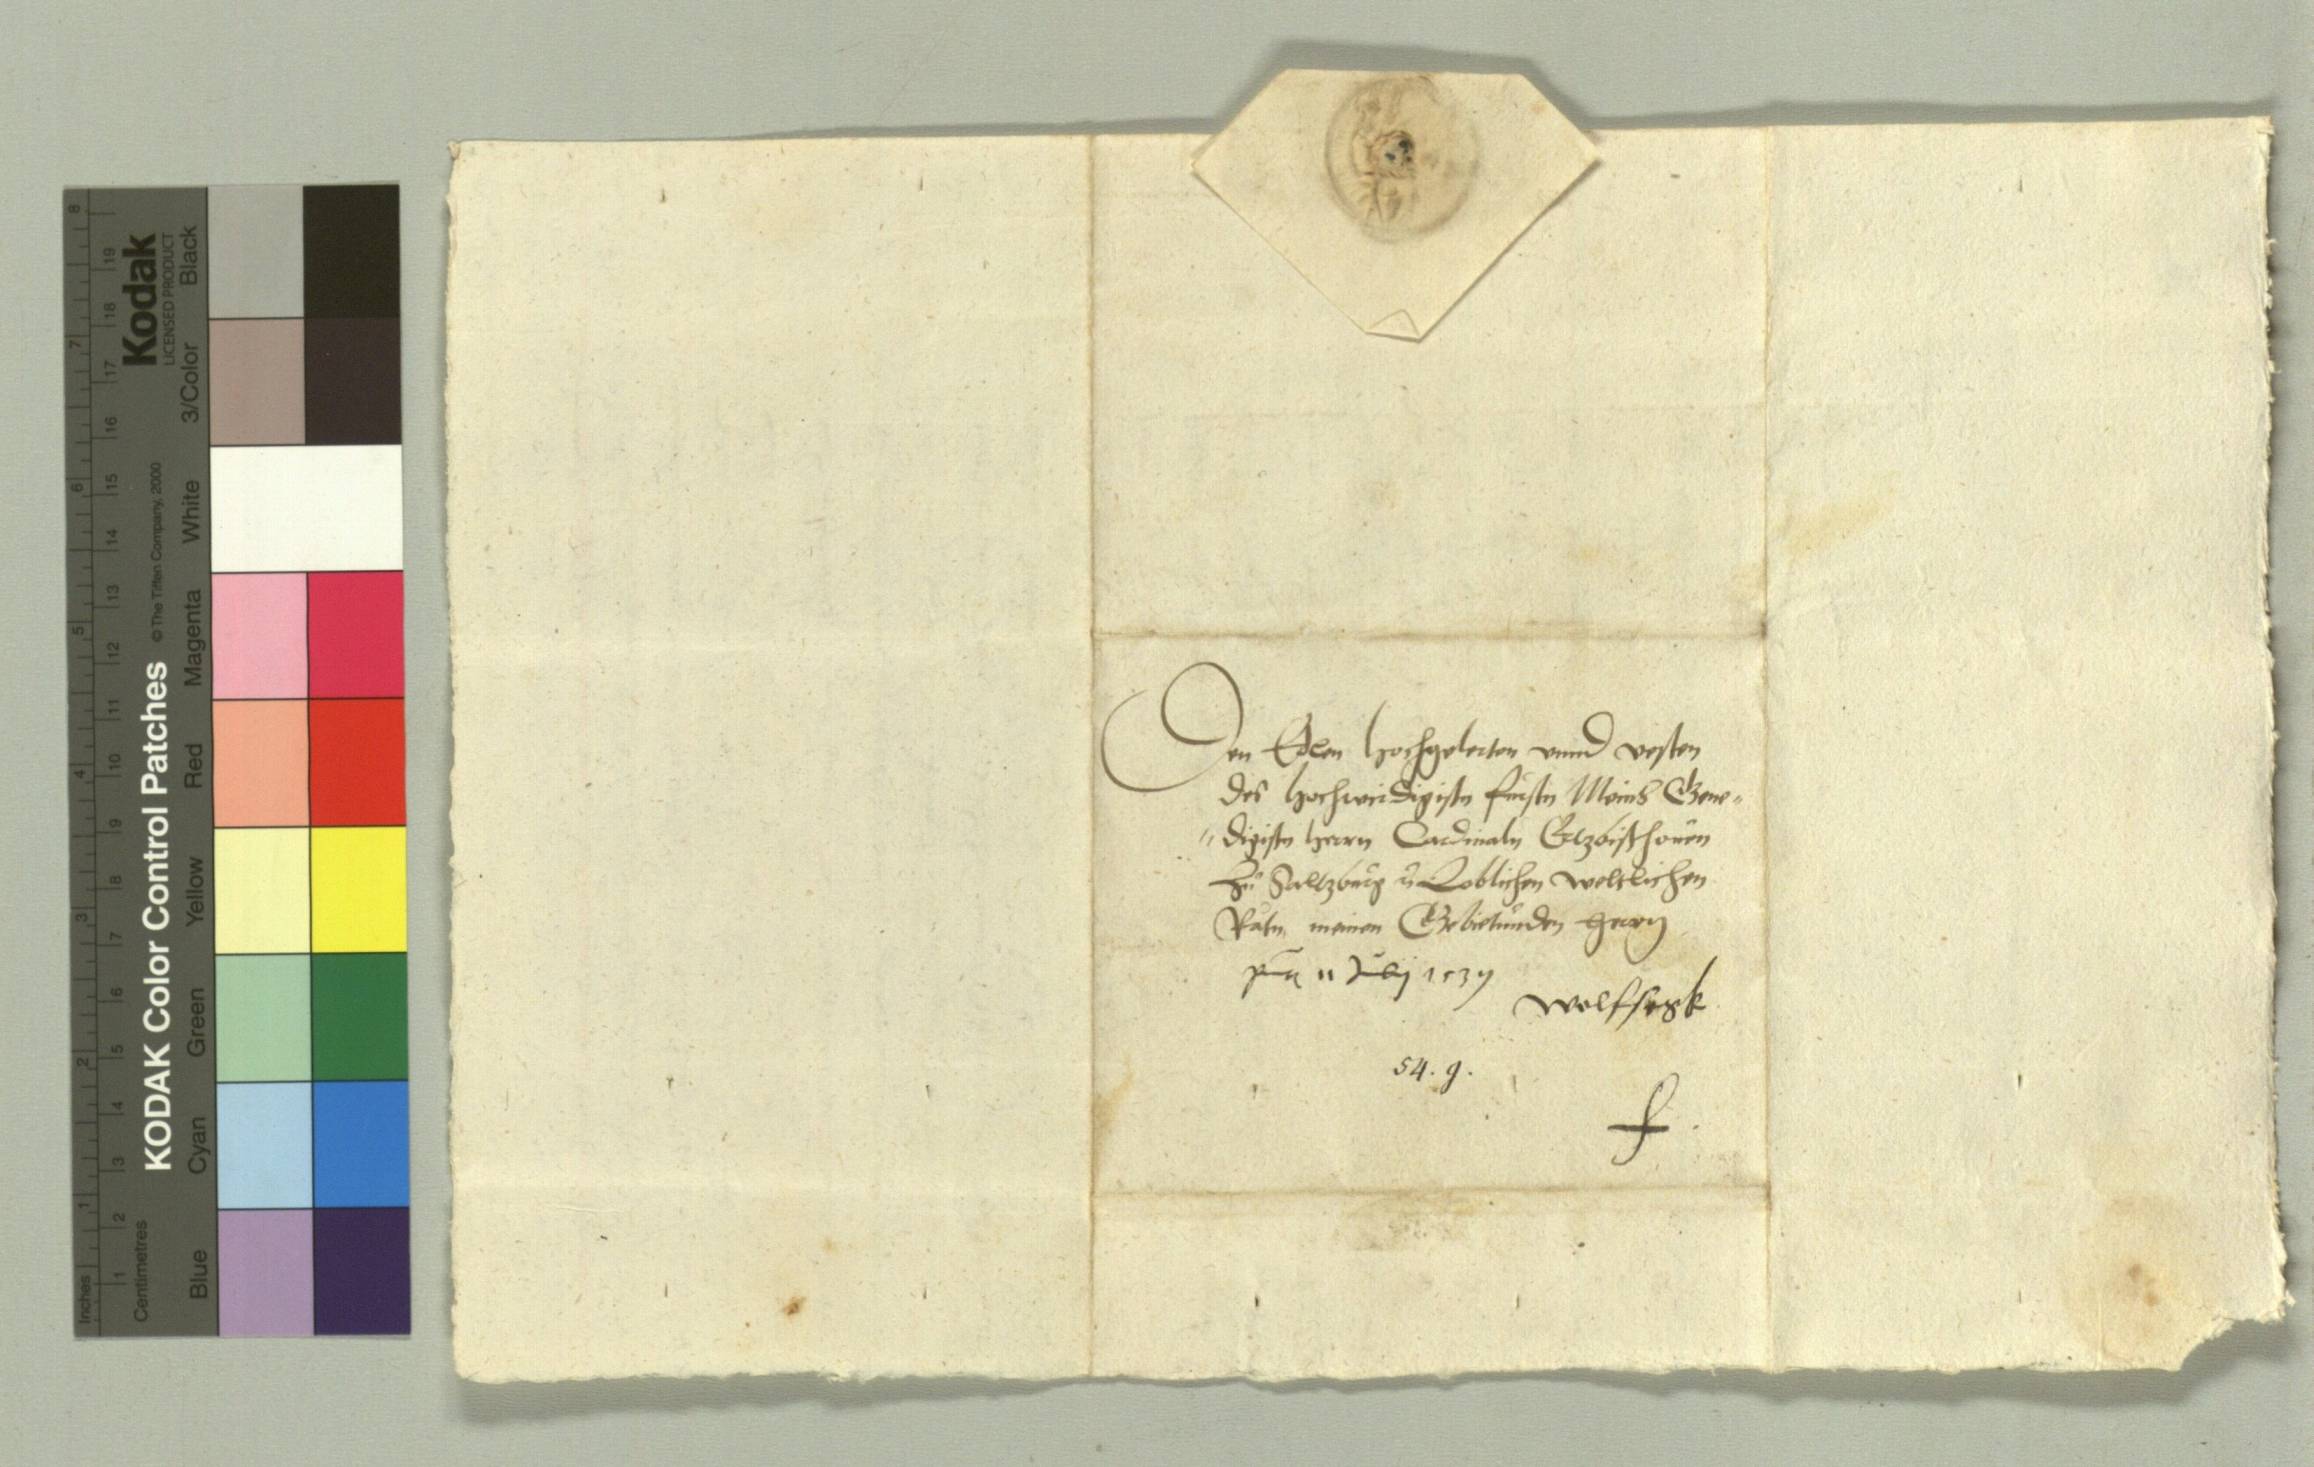 Kodak
LICENSED PRODUCT
KODAK Color Control Patches
© The Tiffen Company, 2000
Black
3/Color
White
Magenta
Red
Yellow
Green
Cyan
Blue
Centimetres
1 2 3 4 5 6 7 8 9 10 11 12 13 14 15 16 17 18 19
Inches
1 2 3 4 5 6 7 8
Den Edlen hochgelerten vnnd vesten
des hochwirdigistn fürstn Meins Gene=
=digistn herrn Cardinaln Ertzbischouen
zu Saltzburg Loblichen weltlichen
Rätn meinen Gebietunden herrn
11 Julij
wolfsegk
54. 9.